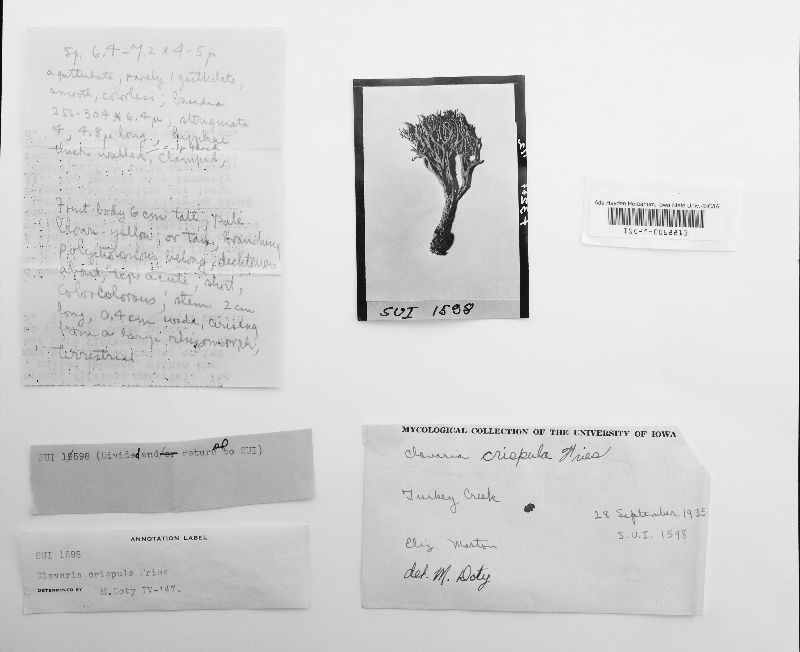 Sp. 6.4-7.2 x 4-5 µ
aguttulate, rarely 1 guttulate,
smooth, colorless; basidia
256-304 x 6.4 µ; sterigmata
4, 4.8 µ long; hyphae
thick walled, clamped,
Fruit body 6 cm tall, pale
brown-yellow, or tan, branching
polychotomous below, dichtomous
above, tips acute, short,
colorcolorous; stem 2 cm
long, 0.4 cm wide, arising
from a large rhizomorph,
terrestrial
SUI 1598
Ada Hayden Herbarium, Iowa State Univ.
ISC-F-0068013
SUI 1598 (Divided and/or returned to SUI)
ANNOTATION LABEL
SUI 1598
Clavaria crispula Fries
DETERMINED BY M.Doty IV-'47.
MYCOLOGICAL COLLECTION OF THE UNIVERSITY OF IOWA
Clavaria crispula Fries
Turkey Creek
28 September 1935
S.U.I. 1598
Eliz. Morton
det. M. Doty